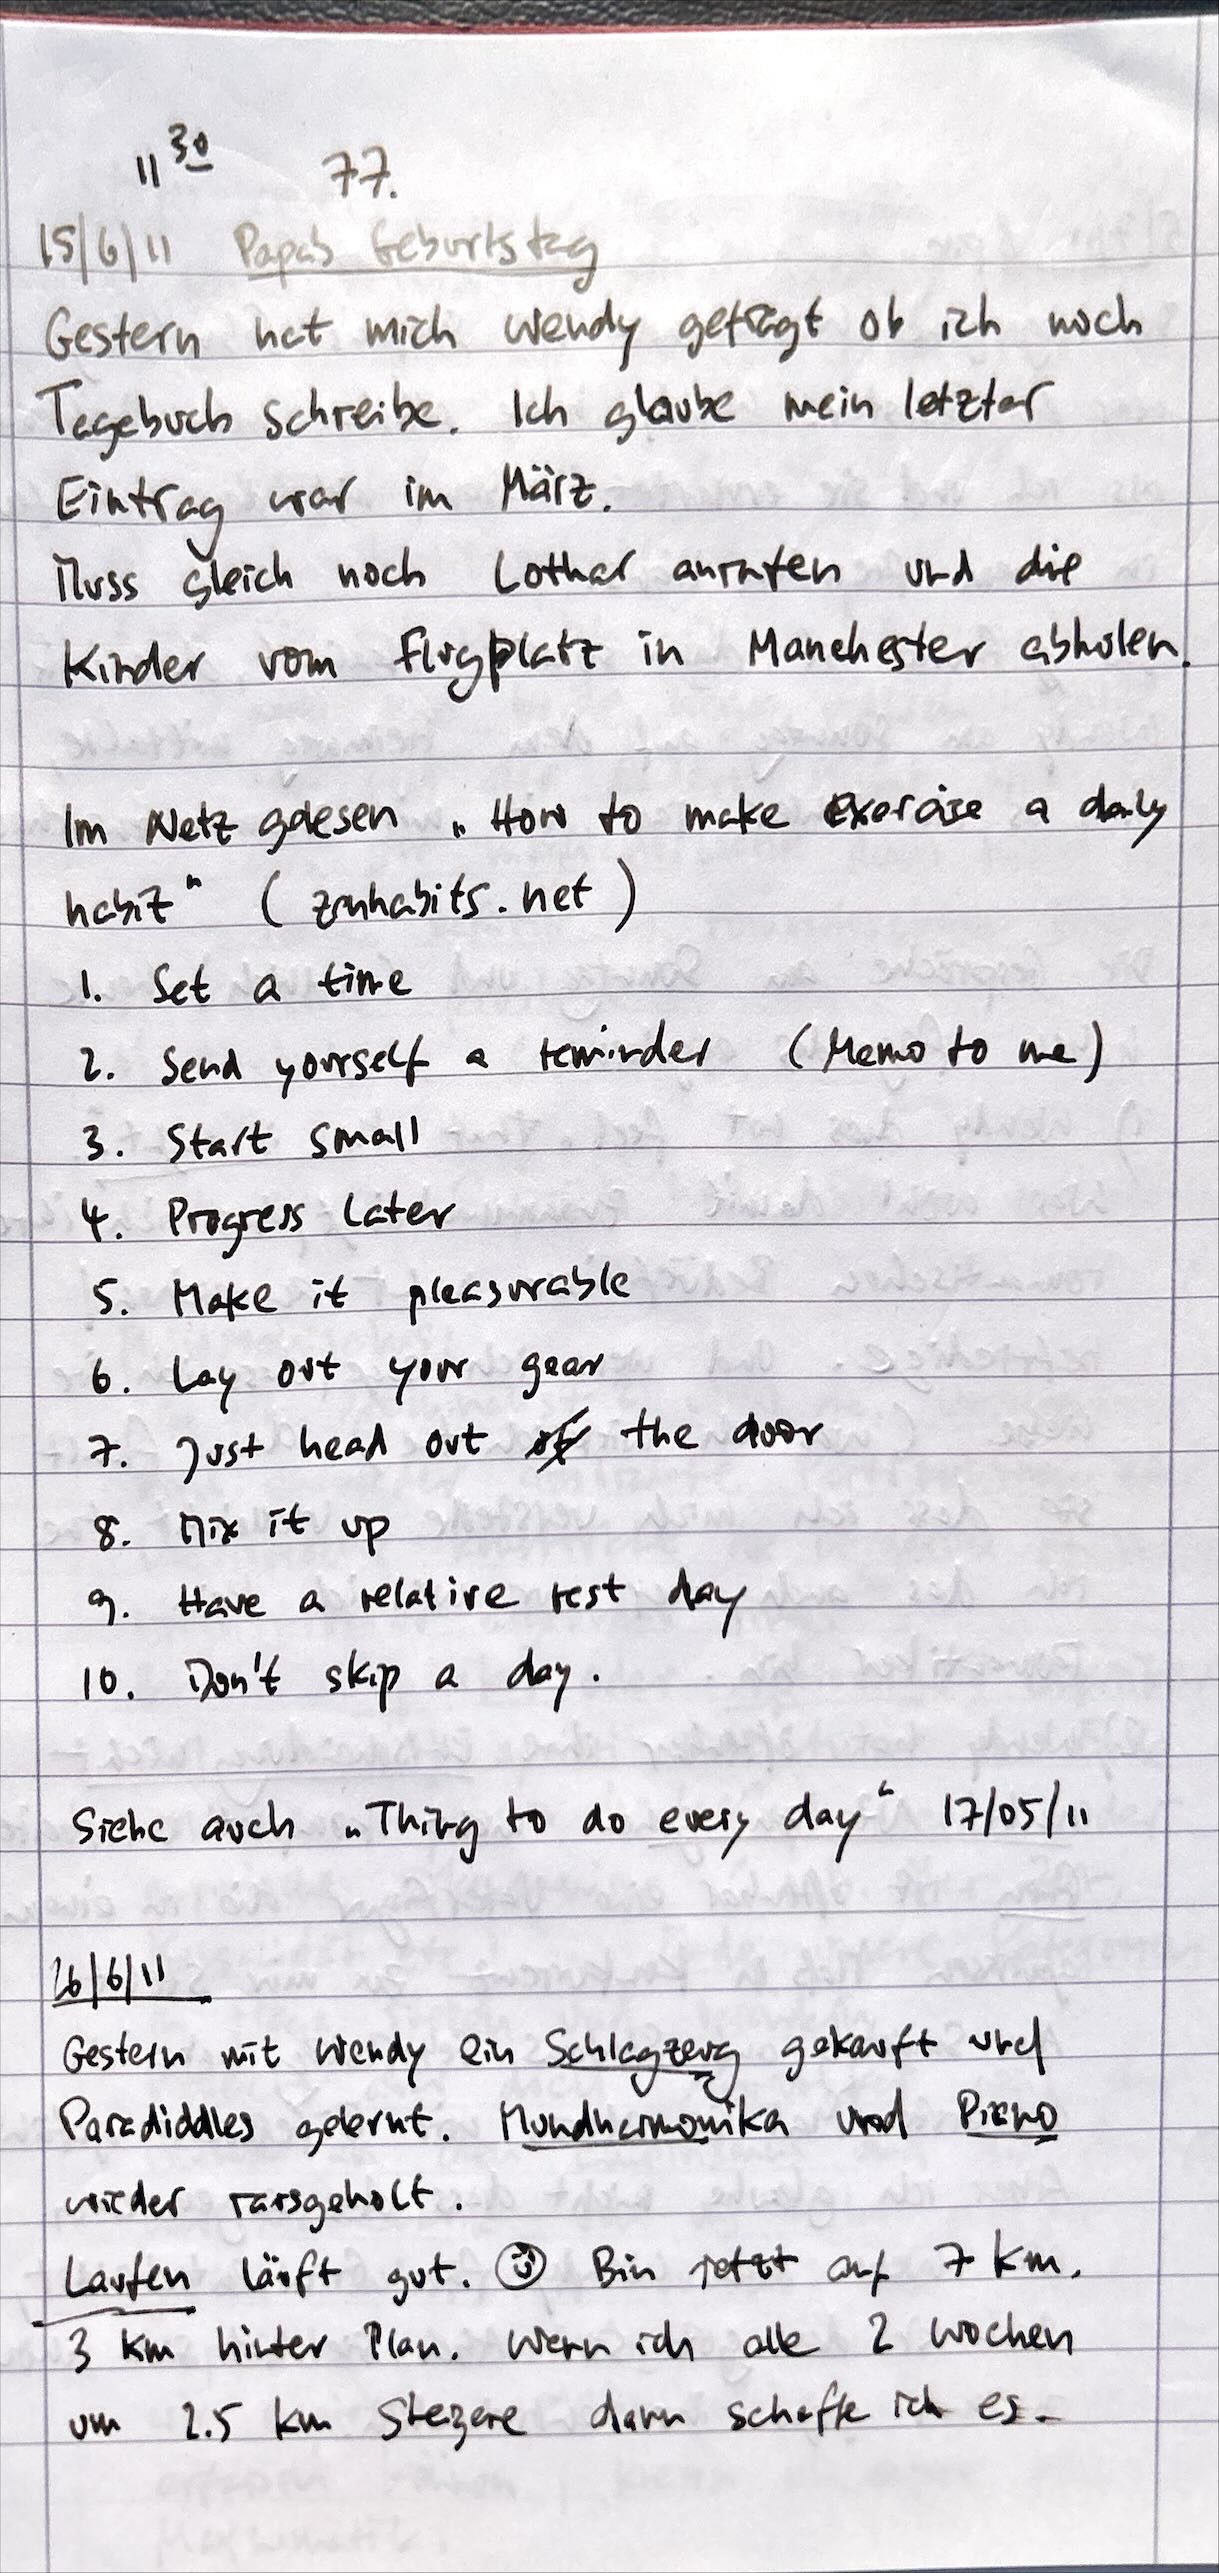 11 30 77.
15/6/11 Papas Geburtstag
Gestern hat mich Wendy gefragt ob ich noch
Tagebuch schreibe. Ich glaube mein letzter
Eintrag war im März.
Muss gleich noch Lothar anrufen und die
Kinder vom Flugplatz in Manchester abholen.
Im Netz gelesen „How to make exercise a daily
habit" (zenhabits.net)
1. Set a time
2. Send yourself a reminder (Memo to me)
3. Start small
4. Progress later
5. Make it pleasurable
6. Lay out your gear
7. Just head out of the door
8. Mix it up
9. Have a relative rest day
10. Don't skip a day.
Siehe auch „Thing to do every day" 17/05/11
26/6/11
Gestern mit Wendy ein Schlagzeug gekauft und
Paradiddles gelernt. Mundharmonika und Piano
wieder rausgeholt.
Laufen läuft gut. ☺ Bin jetzt auf 7 km.
3 km hinter Plan. Wenn ich alle 2 Wochen
um 2.5 km steigere dann schaffe ich es.